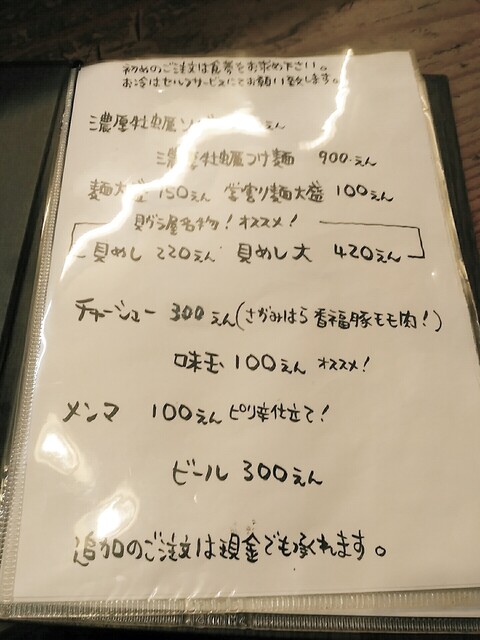 初めのご注文は食券をお求め下さい。
お冷はセルフサービスにてお願い致します。
濃厚牡蠣ソバ えん
濃厚牡蠣つけ麺 900えん
麺大盛 150えん 学割り麺大盛 100えん
貝がら屋名物！オススメ！
貝めし 220えん 貝めし大 420えん
チャーシュー 300えん(さがみはら香福豚モモ肉！)
味玉 100えん オススメ！
メンマ 100えん ピリ辛仕立て！
ビール 300えん
追加のご注文は現金でも承れます。